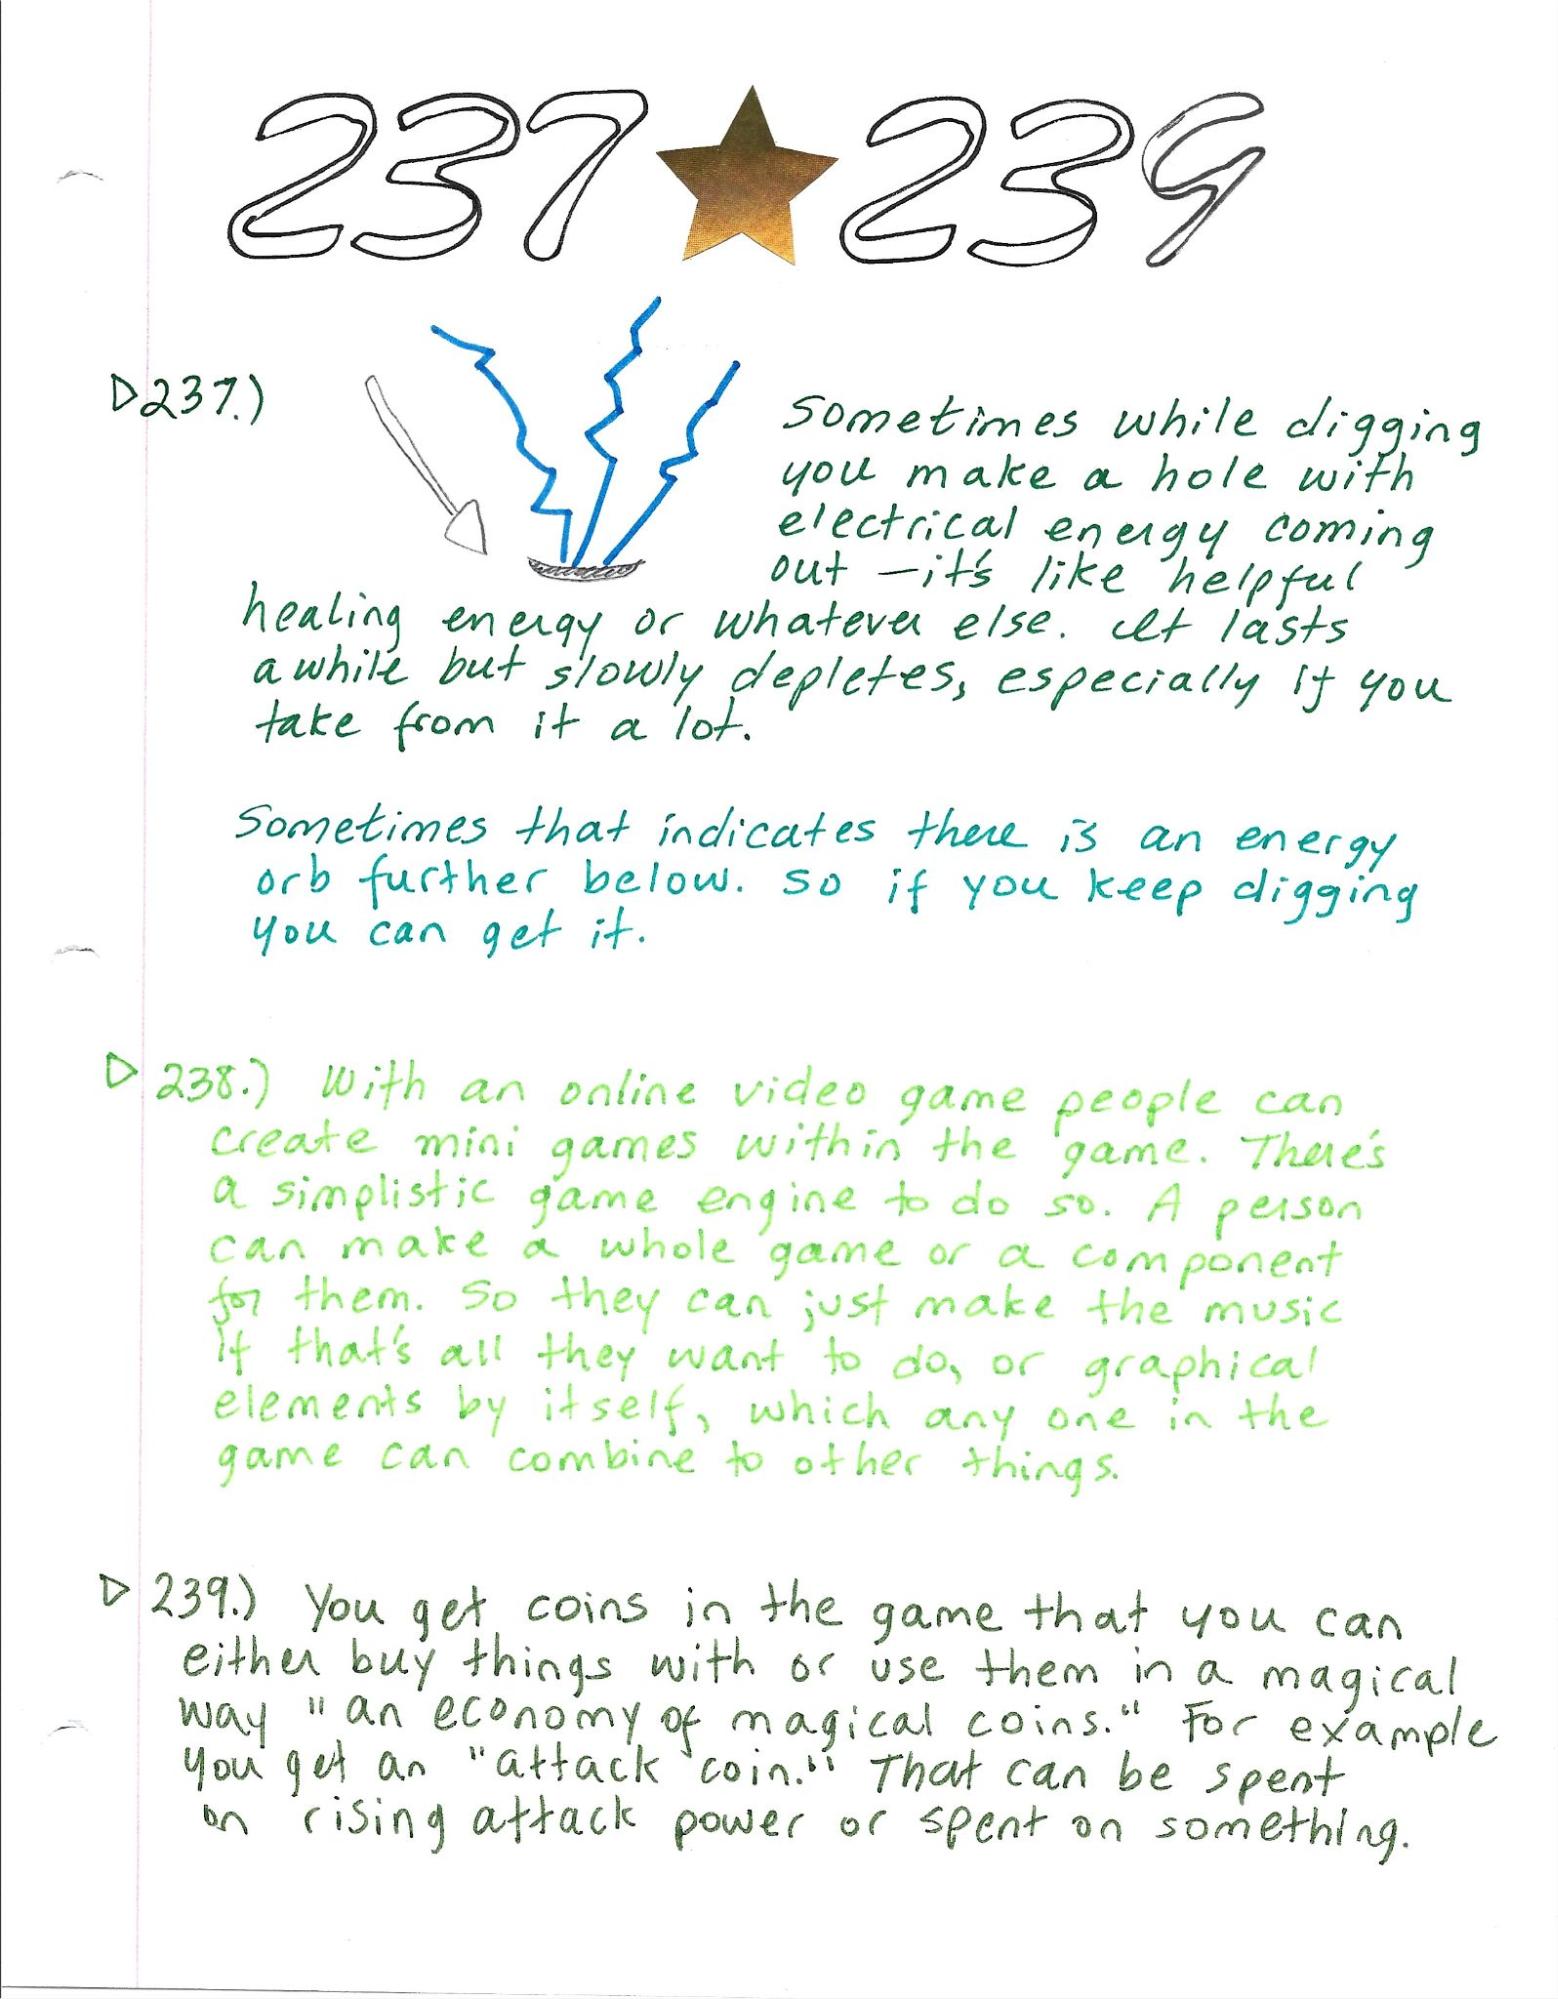 237 239
▷237.)
Sometimes while digging
you make a hole with
electrical energy coming
out – it's like helpful
healing energy or whatever else. It lasts
awhile but slowly depletes, especially if you
take from it a lot.
Sometimes that indicates there is an energy
orb further below. So if you keep digging
you can get it.
▷ 238.) With an online video game people can
create mini games within the game. There's
a simplistic game engine to do so. A person
can make a whole game or a component
for them. So they can just make the music
if that's all they want to do, or graphical
elements by itself, which any one in the
game can combine to other things.
▷ 239.) You get coins in the game that you can
either buy things with or use them in a magical
way "an economy of magical coins." For example
you get an "attack coin." That can be spent
on rising attack power or spent on something.